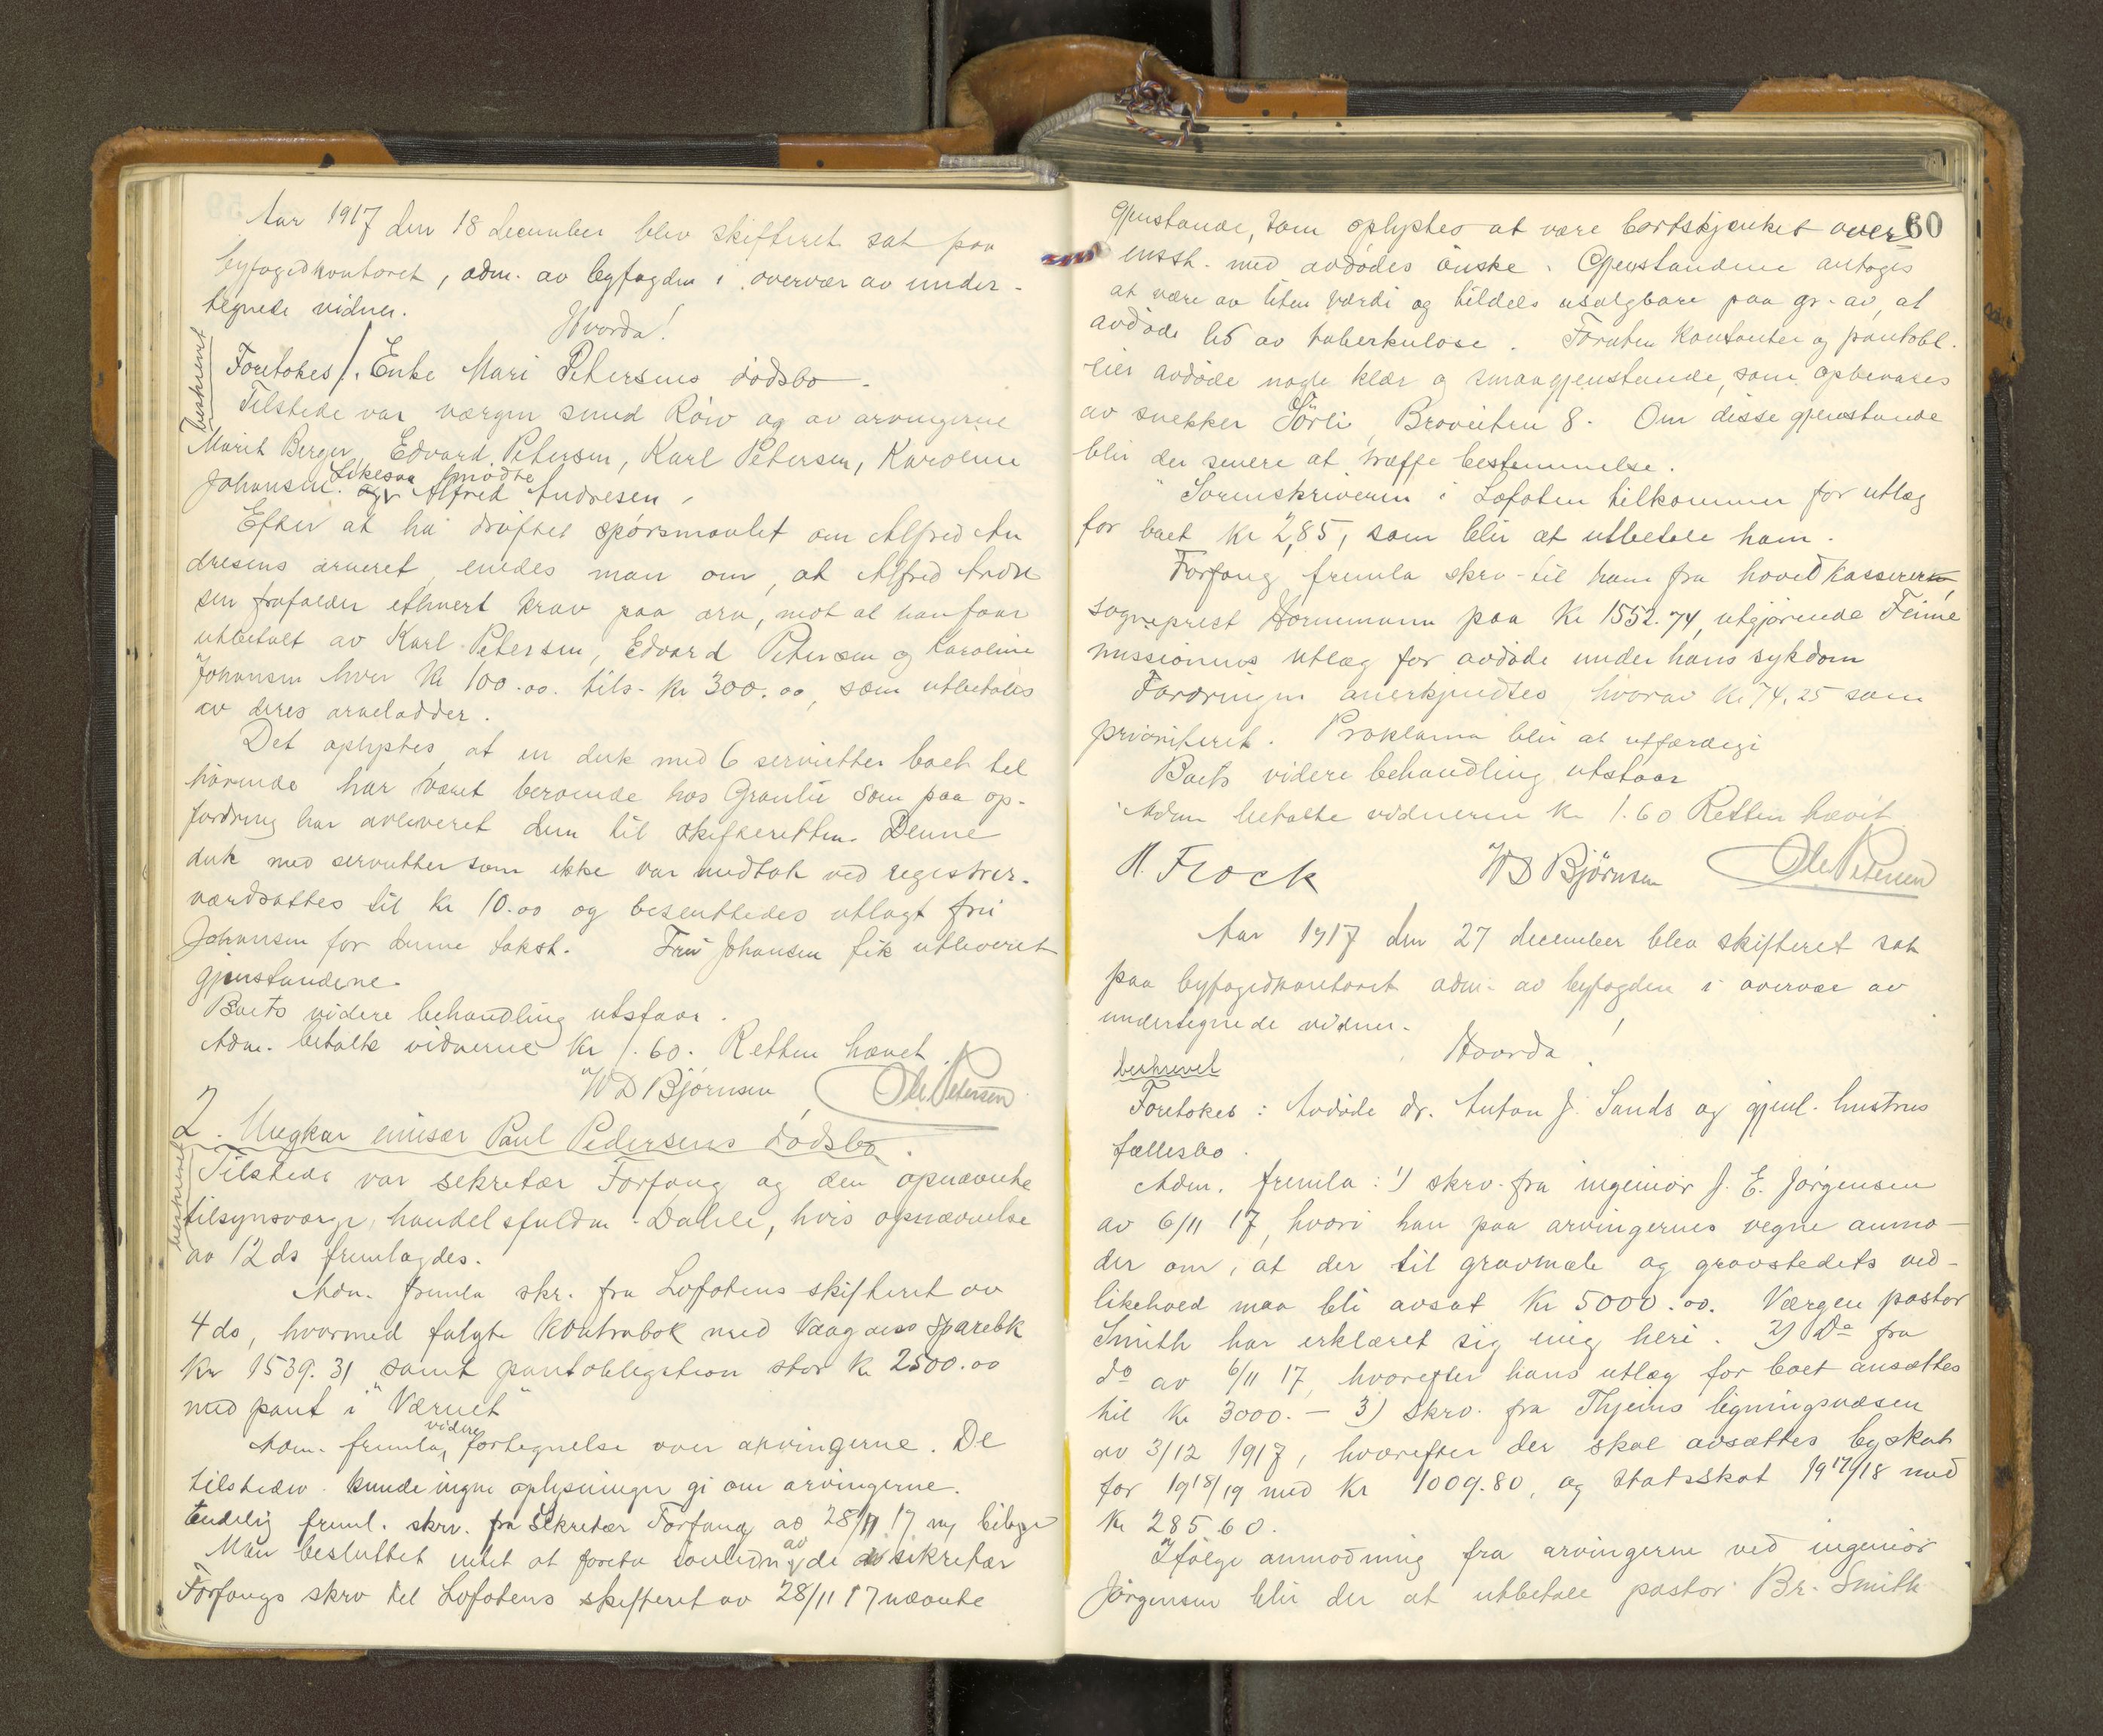 Aar 1917 den 18 december blev skifteret sat paa
byfogedkontoret, adm. av byfogden i overvær av under-
tegnede vidner.
Hvorda!
Beskrevet
Foretokes 1. Enke Mari Petersens dødsbo.
Tilstede var værgen smed Röiv og av arvingerne
Marit Berger, Edvard Petersen, Karl Petersen, Karoline
Johansen. Likesaa mödte Alfred Andresen,
Efter at ha dröftet spörsmaalet om Alfred An
dresens arveret, enedes man om, at Alfred Andre
sen frafalder ethvert krav paa arv, mot at han faar
utbetalt av Karl Petersen, Edvard Petersen og Karoline
Johansen hver Kr 100.00. tils. Kr 300.00, som utbetales
av deres arvelodder.
Det oplystes, at en duk med 6 servietter boet til
hörende har været beroende hos Grantu som paa op-
fordring har avleveret dem til skifteretten. Denne
duk med servietter som ikke var medtat ved registrer.
værdsattes til Kr 10.00 og besluttedes utlagt fru
Johansen for denne takst. Fru Johansen fik utleveret
gjenstandene.
Boets videre behandling utstaar.
Adm. betalte vidnerne Kr 1.60. Retten hævet.
WD Bjørnsen, Ole Petersen
2. Ungkar emissær Paul Pedersens dødsbo.
beskrevet
Tilstede var sekretær Forfang og den opnævnte
tilsynsværge, handelsfuldm. Dahle, hvis opnævnelse
av 12 ds fremlagdes.
Adm. fremla skr. fra Lofotens skifteret av
4 ds, hvormed fulgte kontrabok med Vaagans Sparebk
Kr 1539.31 samt pantobligation stor Kr 2500.00
med pant i "Værnet"
Adm. fremla videre fortegnelse over arvingerne. De
tilstedev. kunde ingen oplysninger gi om arvingerne.
Endelig freml. skrv. fra Sekretær Forfang av 28/11 17 m/ bilage
Man besluttet intet at foreta av de av sekretær
Forfangs skrv til Lofotens skifteret av 28/11 17 nævnte
60
gjenstande, som oplystes at være bortskjænket over
ensst. med avdödes önske. Gjenstandene antages
at være av liten værdi og tildels usalgbare paa gr. av, at
avdöde led av tuberkulose. Foruten Kontanter og pantobl.
eier avdöde nogle klær og smaagjenstande, som opbevares
av snekker Sörli, Broveiten 8. Om disse gjenstande
blir der senere at træffe bestemmelse.
Sorenskriveren i Lofoten tilkommer for utlæg
for boet Kr 2,85, som blir at utbetale ham.
Forfang fremla skrv. til ham fra hovedkasserer,
sogneprest Hornemann paa Kr 1552.74, utgjörende Finne
missionens utlæg for avdöde under hans sykdom
Fordringen anerkjendtes, hvorav Kr 74,25 som
prioriteret. Proklama blir at utfærdige
Boets videre behandling utstaar
Adm betalte vidnerne Kr 1.60 Retten hævet
H. Flock WD Bjørnsen Ole Petersen
Aar 1917 den 27 december blev skifteret sat
paa byfogedkontoret adm. av byfogden i overvær av
undertegnede vidner.
Hvorda!
Beskrevet
Foretokes: Avdöde dr. Anton J. Sands og gjenl. hustrus
fællesbo.
Adm. fremla: 1) skrv. fra ingeniör J. E. Jörgensen
av 6/11 17, hvori han paa arvingernes vegne anmo-
der om, at der til gravmæle og gravstedets ved-
likehold maa bli avsat Kr 5000.00. Værgen pastor
Smith har erklæret sig enig heri. 2) Do fra
do av 6/11 17, hvorefter hans utlæg for boet ansættes
til Kr 3000.— 3) Skrv. fra Thjems ligningsvæsen
av 3/12 1917, hvorefter der skal avsættes byskat
for 1918/19 med Kr 1009.80, og Statsskat 1917/18 med
Kr 285.60.
Ifölge anmodning fra arvingerne ved ingeniör
Jörgensen blir der at utbetale pastor Br. Smith